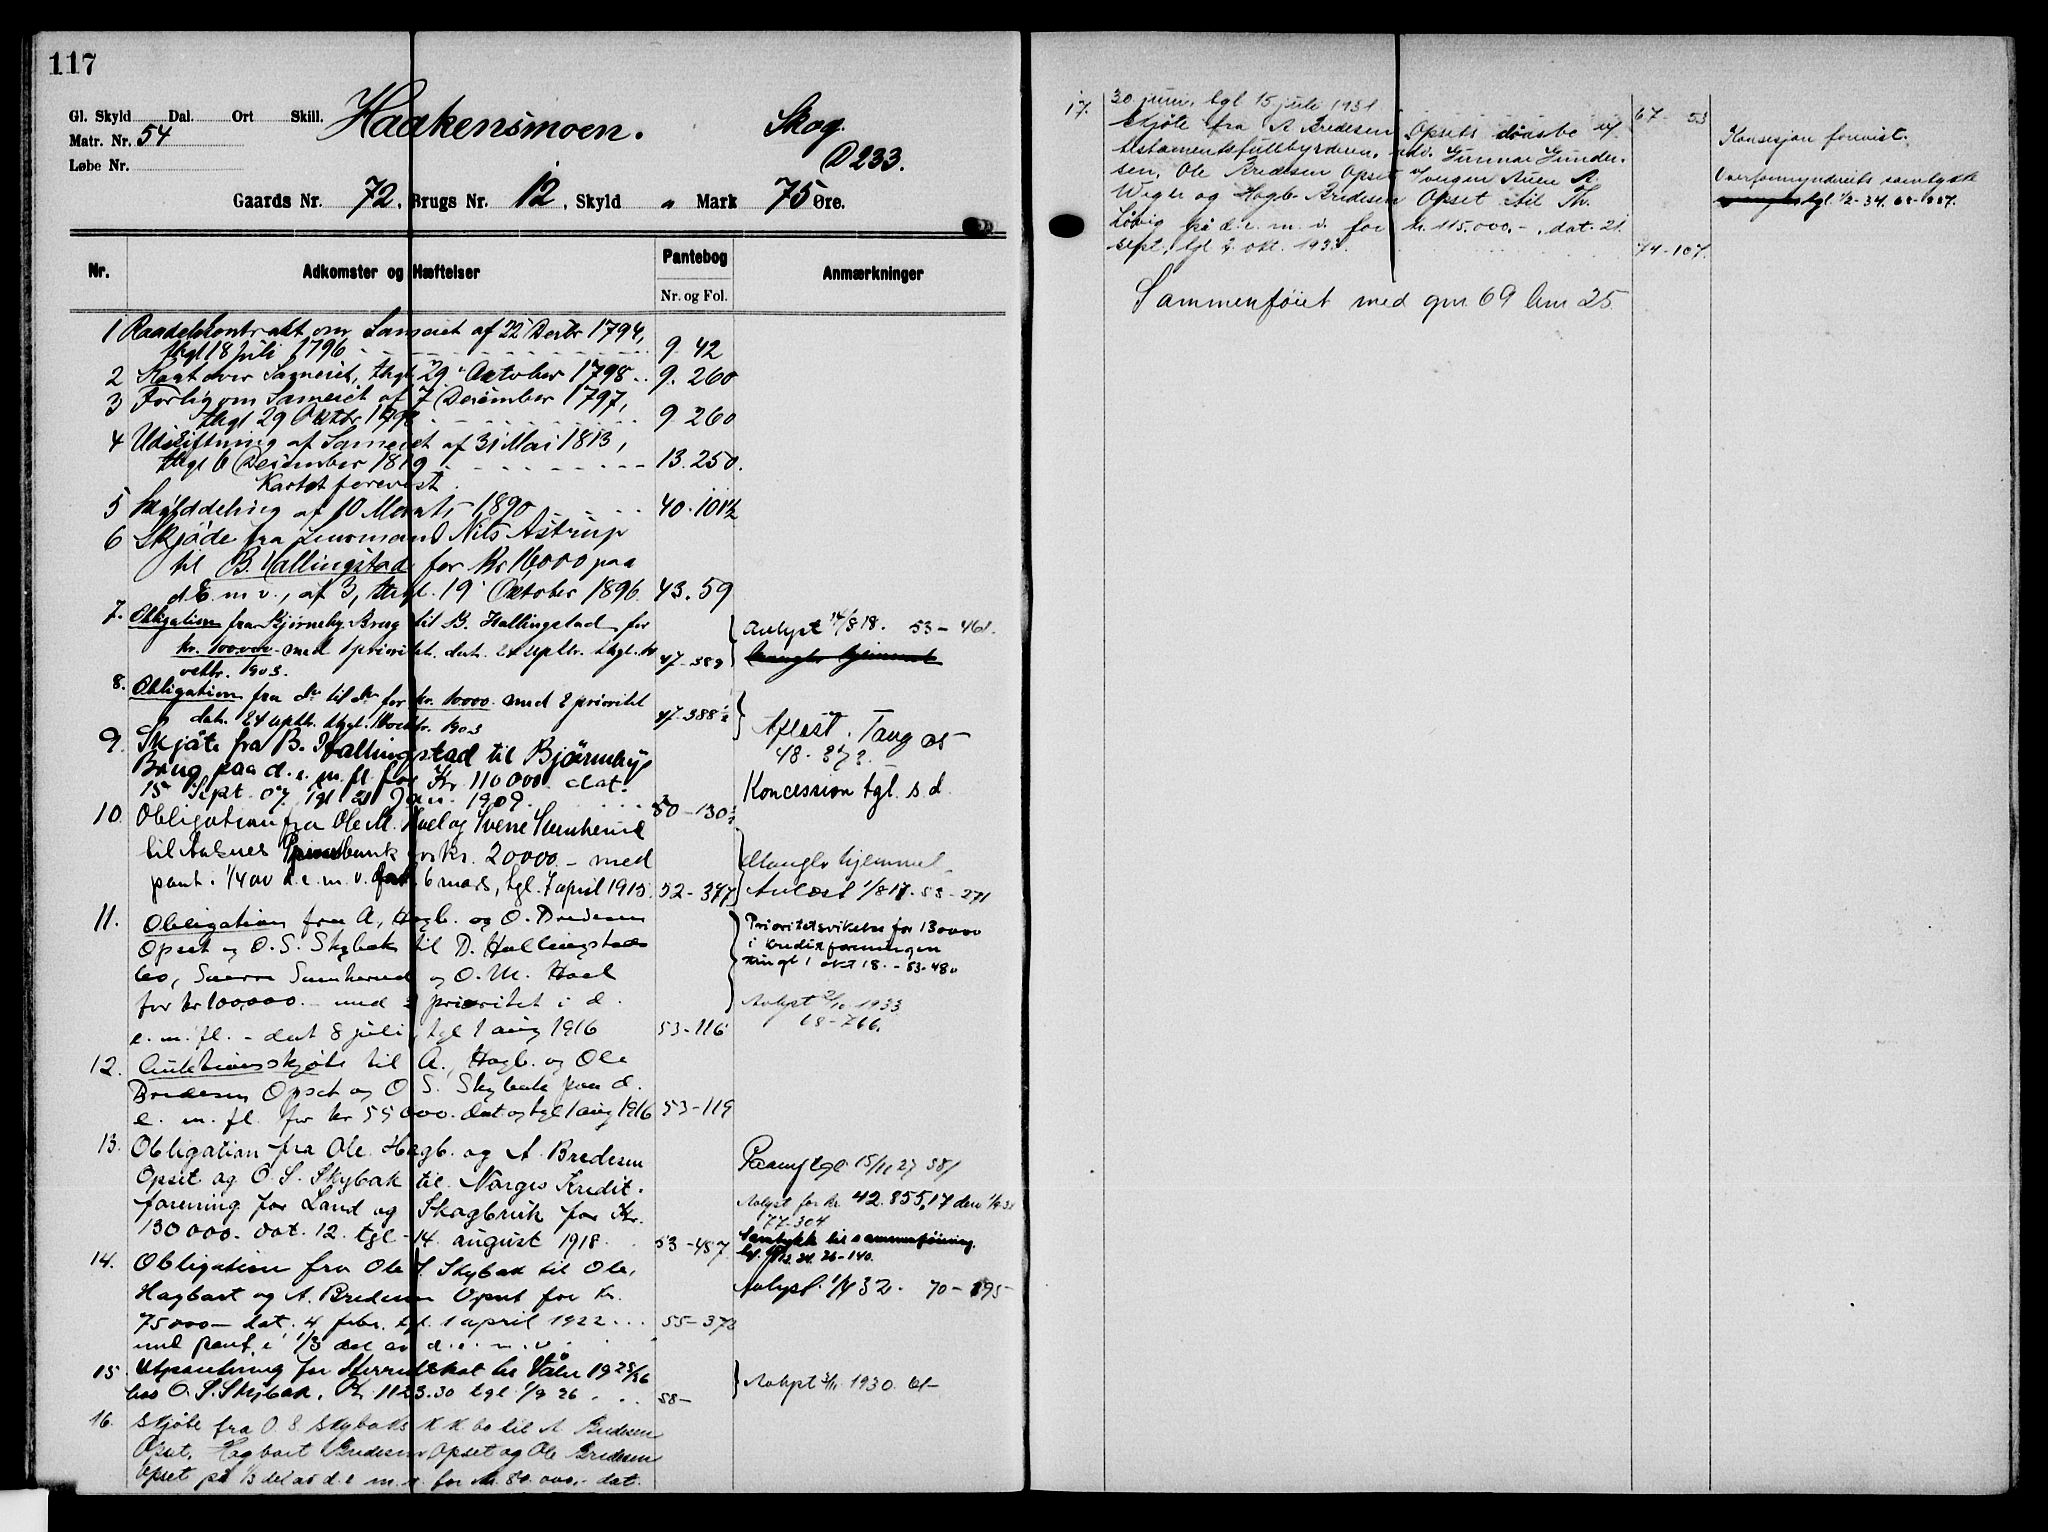 117
Gl. Skyld Dal. Ort Skill. Haakensmoen. Skog.
Matr. Nr. 54
Løbe Nr. D 233.
Gaards Nr. 72, Brugs Nr. 12, Skyld " Mark 75 Øre.
Nr. Adkomster og Hæftelser Pantebog Anmærkninger
Nr. og Fol.
1 Raadelskontrakt om Sameiet af 22 Desbr 1794,
thgl 18 Juli 1796 9. 42
2 over Sameiet, thgl 29 Oktober 1798 9. 260
3 Forlig om Sameiet af 7 Desember 1797,
thgl 29 Oktbr 1798 9 260
4 Udskiftning af Sameiet af 31 Mai 1813,
thgl 6 Desember 1819 13. 250.
Kartet forevist.
5 Skylddeling af 10 1890 40. 101½
6 Skjøde fra Lensmand Nils Astrup
til B. Hallingstad for Kr 16000 paa
d. E. m v., af 3, thgl. 19 Oktober 1896. 43. 59
7. Obligation fra Bjørneby Brug til B. Hallingstad for
kr. 100.000 med 1 prioritet. dat. 24 septbr. thgl. 10
oktbr. 1903. 47-389
Avlyst 14/8 18. 53-461.
mangler hjemmel
8. Obligation fra do til do for kr. 10000. med 2 prioritet
dat. 24 septbr. thgl. 10 oktbr. 1903 47-388½
Aflæst. Tang 05
48-
9. Skjøte fra B. Hallingstad til Bjørneby
Brug paa d. e. m. fl. for Kr 110000. dat.
15 Sept. 07. tgl 21 Jan. 1909. 50-130½
Koncession tgl. s d.
10. Obligation fra Ole M. Hoel og Sverre Sunherud
til Aulnes Privatbank for kr. 20000.- med
pant i 1/4 av d. e. m. v. dat. 6 mars, tgl. 7 april 1915. 52-377
Mangler hjemmel
Avlæst 1/8 17. 53-271
11. Obligation fra A., Hagb. og O. Bredesen
Opset og O. S. Skybak til D. Hallingstads
bo, Sverre Sunherud og O. M. Hoel
for kr 100,000.- med 2 prioritet i d.
e. m. fl. - dat 8 juli, tgl 1 aug 1916 53-116
Prioritetsvikelse for 130000
i Kreditforeningen
tingl 1 okt 18. - 53-480
Avlyst 2/10 1933
68-766.
12. Auktionsskjøte til A., Hagb. og Ole
Bredesen Opset og O. S. Skybak paa d.
e. m. fl. for kr 55000. dat og tgl 1 aug 1916 53-119
13. Obligation fra Ole. Hagb. og A. Bredesen
Opset og O. S. Skybak til Norges Kredit-
forening for Land og Skogbruk for Kr.
130000. dat. 12. tgl - 14 august 1918. 53-487
tgl 15/11 27 58/
Avlyst for kr 42.855,17 den
77-304
Samtykke til sammenføining
26-140.
14. Obligation fra Ole S. Skybak til Ole,
Hagbart og A. Bredesen Opset for Kr.
75000- dat. 4 febr. tgl. 1 april 1922 55-372
med pant i 1/3 del av d. e. m. v.
Avlyst 1/4 32. 70-195
15. Utpantning for Herredskat til Våler 1925/26
hos O. S. Skybak, Kr. 1123.30 tgl 1/9 26 58-
Avlyst 1930.
16. Skjøte fra O. S. Skybaks k k bo til A Bredesen
Opset, Hagbart Bredesen Opset og Ole Bredesen
Opset på 1/3 del av d. e. m. v. for kr. 80.000,- dat.
17. 30 juni, tgl 15 juli 1931. 67-53
Skjøte fra A Bredesen Opsets dødsbo v/
testamentsfullbyrderen, adv. Gunnar Gunder-
sen, Ole Bredesen Opset v/vergen A.
Wigler og Hagb. Bredesen Opset til Th.
Løvig på d. e. m. v. for kr. 115.000,-, dat. 21.
sept., tgl 2 okt. 193 74-107.
Konsesjon forevist.
Overformynderiets samtykke
tgl. 1/2-34.
Sammenføiet med gnr 69 bnr 25.